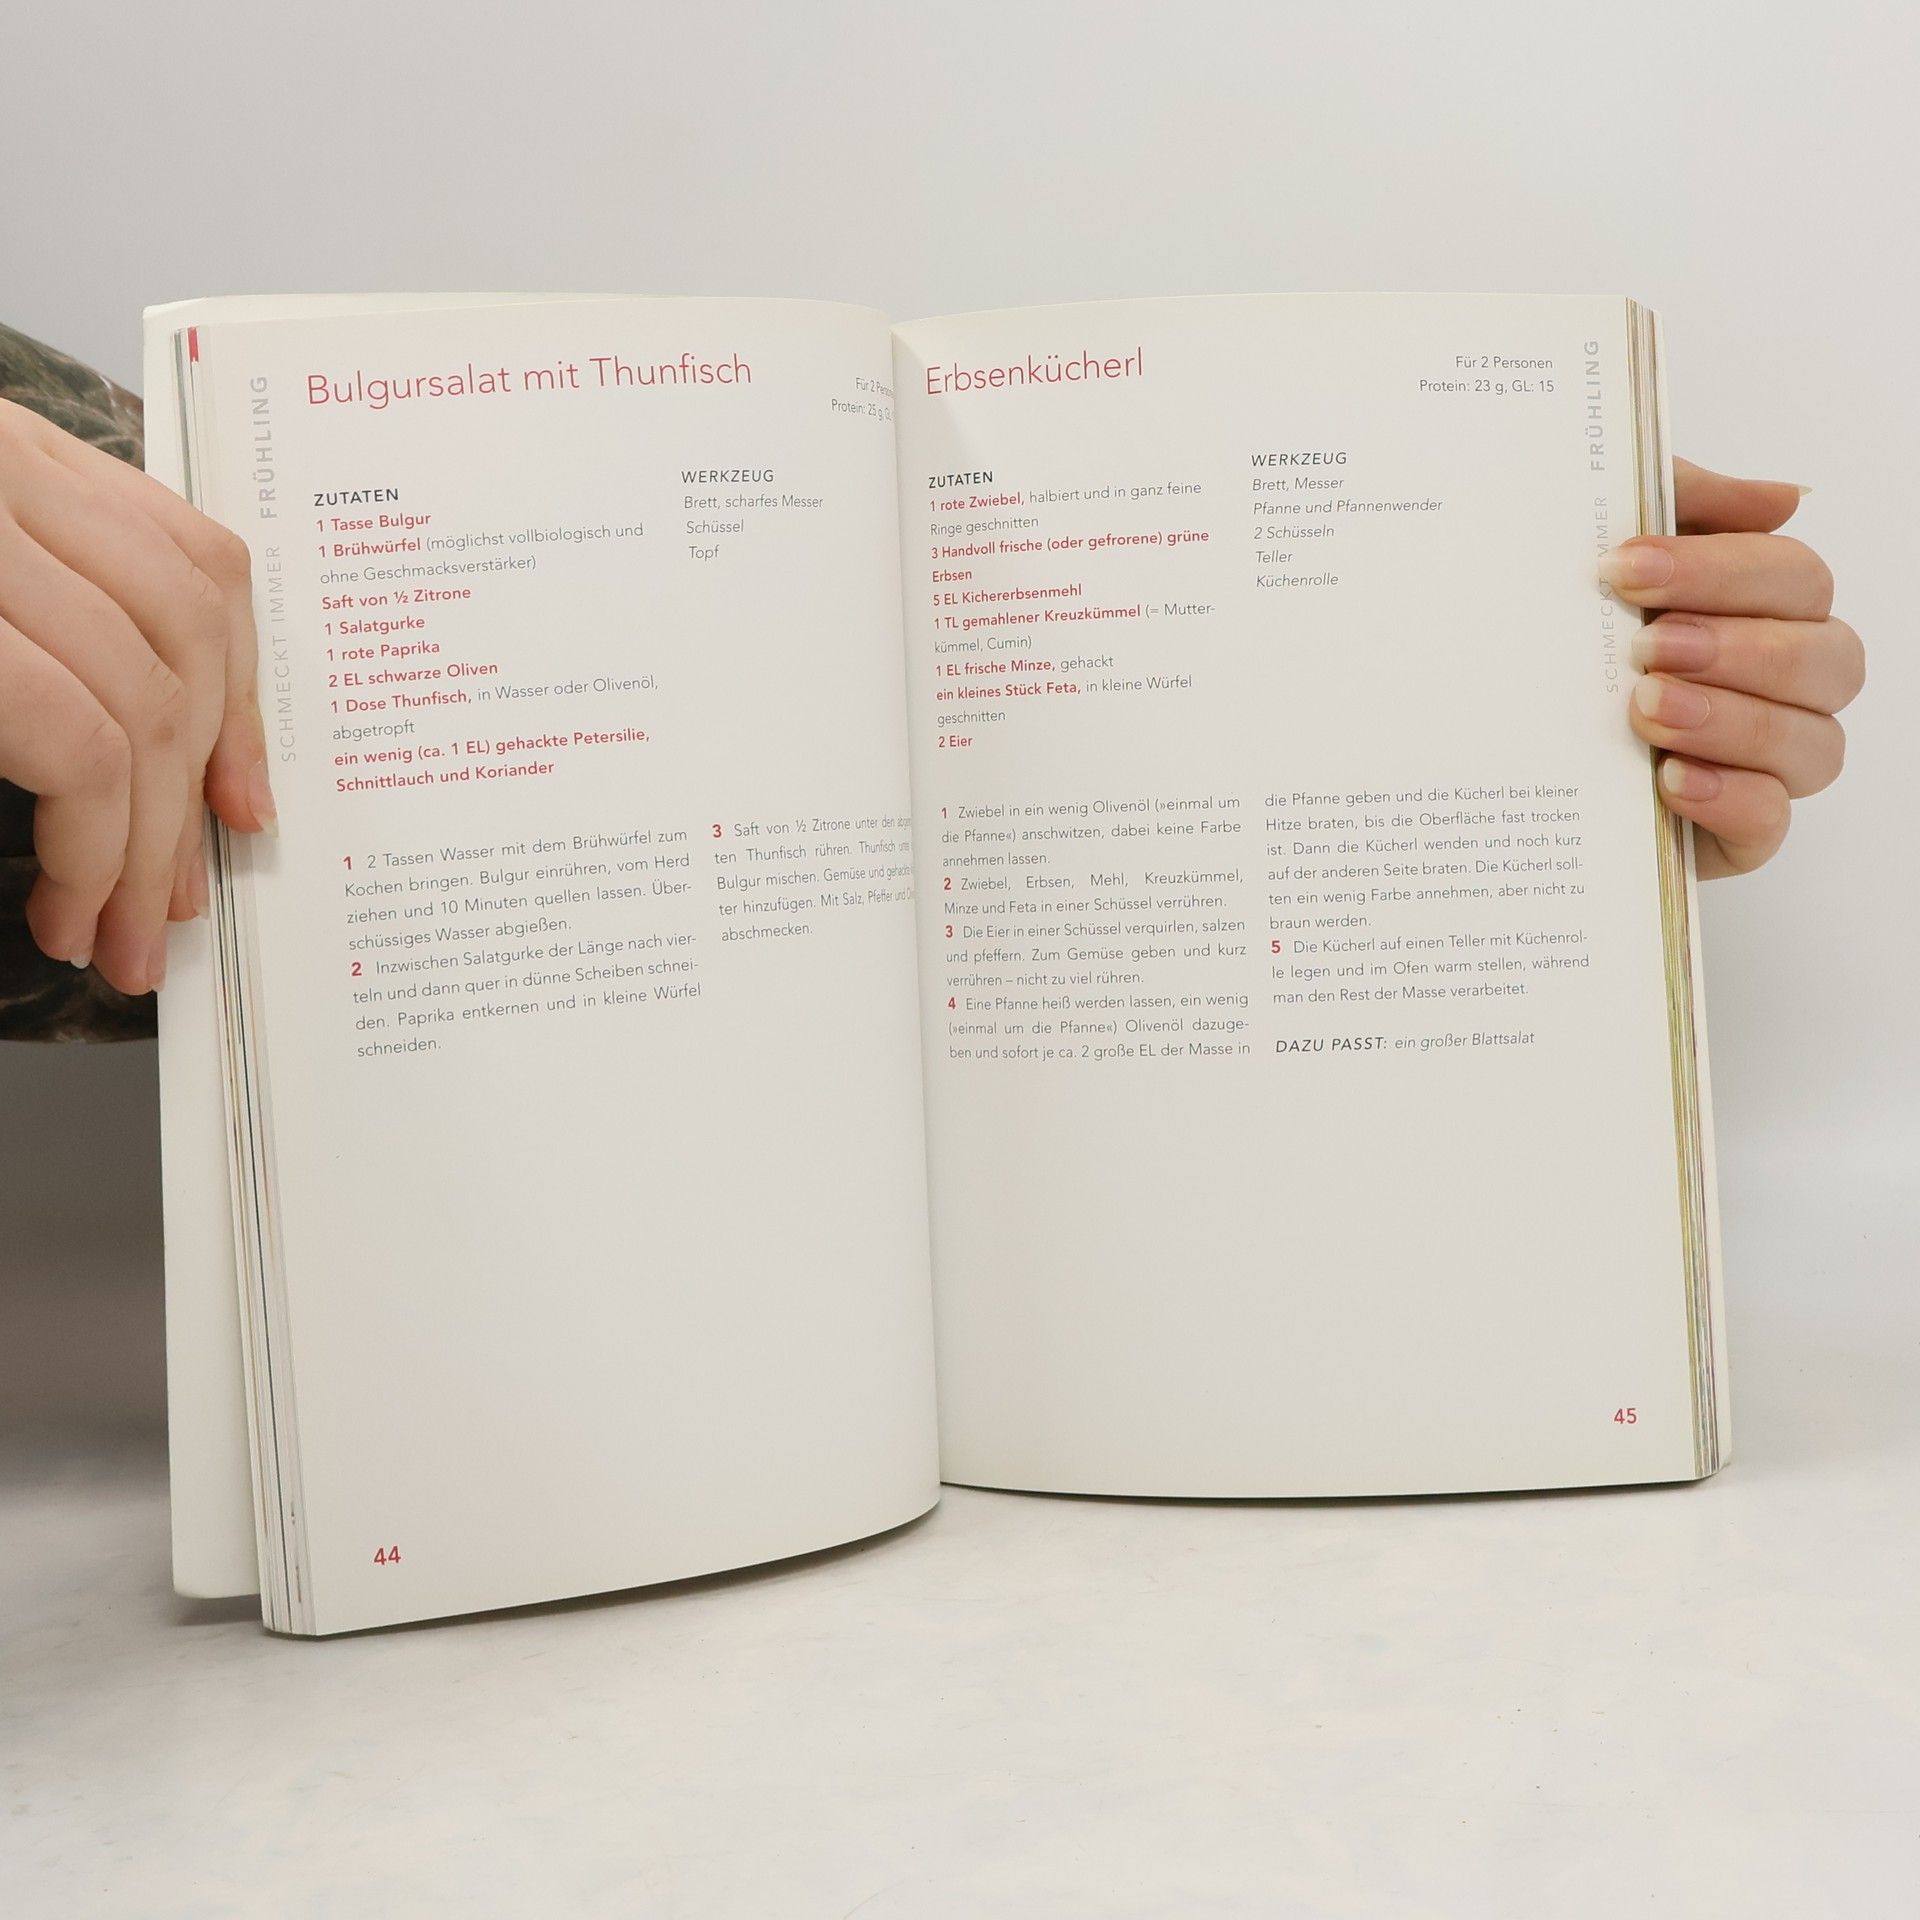 SCHMECKT IMMER FRÜHLING
Bulgursalat mit Thunfisch
Für 2
Protein: 25 g,
ZUTATEN
1 Tasse Bulgur
1 Brühwürfel (möglichst vollbiologisch und
ohne Geschmacksverstärker)
Saft von ½ Zitrone
1 Salatgurke
1 rote Paprika
2 EL schwarze Oliven
1 Dose Thunfisch, in Wasser oder Olivenöl,
abgetropft
ein wenig (ca. 1 EL) gehackte Petersilie,
Schnittlauch und Koriander
WERKZEUG
Brett, scharfes Messer
Schüssel
Topf
1 2 Tassen Wasser mit dem Brühwürfel zum
Kochen bringen. Bulgur einrühren, vom Herd
ziehen und 10 Minuten quellen lassen. Über-
schüssiges Wasser abgießen.
2 Inzwischen Salatgurke der Länge nach vier-
teln und dann quer in dünne Scheiben schnei-
den. Paprika entkernen und in kleine Würfel
schneiden.
3 Saft von ½ Zitrone unter den
ten Thunfisch rühren. Thunfisch
Bulgur mischen. Gemüse und
ter hinzufügen. Mit Salz, Pfeffer und
abschmecken.
44
Erbsenkücherl
Für 2 Personen
Protein: 23 g, GL: 15
ZUTATEN
1 rote Zwiebel, halbiert und in ganz feine
Ringe geschnitten
3 Handvoll frische (oder gefrorene) grüne
Erbsen
5 EL Kichererbsenmehl
1 TL gemahlener Kreuzkümmel (= Mutter-
kümmel, Cumin)
1 EL frische Minze, gehackt
ein kleines Stück Feta, in kleine Würfel
geschnitten
2 Eier
WERKZEUG
Brett, Messer
Pfanne und Pfannenwender
2 Schüsseln
Teller
Küchenrolle
1 Zwiebel in ein wenig Olivenöl (»einmal um
die Pfanne«) anschwitzen, dabei keine Farbe
annehmen lassen.
2 Zwiebel, Erbsen, Mehl, Kreuzkümmel,
Minze und Feta in einer Schüssel verrühren.
3 Die Eier in einer Schüssel verquirlen, salzen
und pfeffern. Zum Gemüse geben und kurz
verrühren – nicht zu viel rühren.
4 Eine Pfanne heiß werden lassen, ein wenig
(»einmal um die Pfanne«) Olivenöl dazuge-
ben und sofort je ca. 2 große EL der Masse in
die Pfanne geben und die Kücherl bei kleiner
Hitze braten, bis die Oberfläche fast trocken
ist. Dann die Kücherl wenden und noch kurz
auf der anderen Seite braten. Die Kücherl soll-
ten ein wenig Farbe annehmen, aber nicht zu
braun werden.
5 Die Kücherl auf einen Teller mit Küchenrol-
le legen und im Ofen warm stellen, während
man den Rest der Masse verarbeitet.
DAZU PASST: ein großer Blattsalat
SCHMECKT IMMER FRÜHLING
45